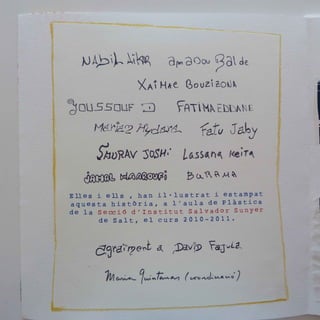 NabiL aika amadou Balde
XAIMAE BOUZIZONA
youssouf D FATIMAEDDANE
Mariam Hydara Fatu Jaby
SAURAV JOSHi Lassana Keita
JAMAL MAAROUFI BURAMA
Elles i ells , han il·lustrat i estampat
aquesta història, a l'aula de Plàstica
de la Secció d'Institut Salvador Sunyer
de Salt, el curs 2010-2011.
agraiment a David Fajula
Maria Quintanas (coordinació)